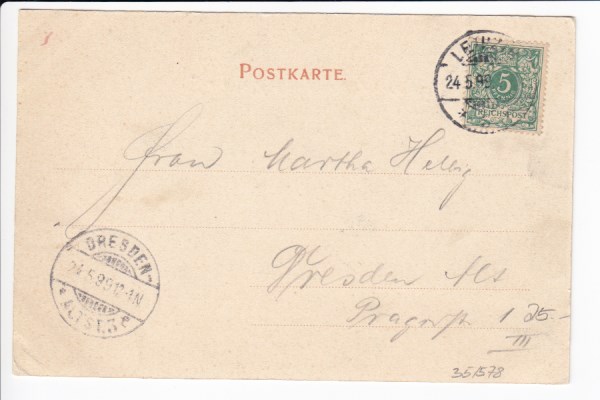 POSTKARTE.
LEIPZ
24.5.99
5
REICHSPOST
Frau Martha Helbig
DRESDEN
24.5.99.12-1N
ALTST. 3
Dresden Alt
Pragerstr 1
III
25.-
351578